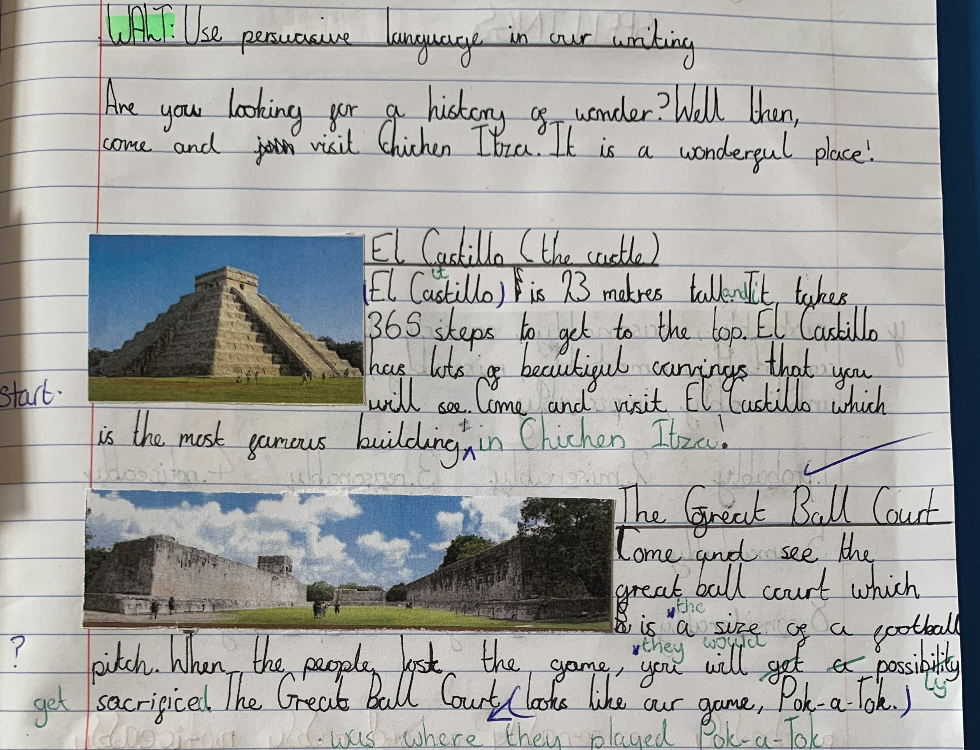 WALT: Use persuasive language in our writing
Are you looking for a history of wonder? Well then,
come and join visit Chichen Itza. It is a wonderful place!
El Castillo (the castle)
it
(El Castillo) is 23 metres tall and It takes
365 steps to get to the top. El Castillo
has lots of beautiful carvings that you
start.
will see. Come and visit El Castillo which
is the most famous building in Chichen Itza!
The Great Ball Court
Come and see the
great ball court which
the
is a size of a football
they would
? pitch. When the people lost the game, you will get a possibility
ly
get sacrificed. The Great Ball Court (looks like our game, Pok-a-Tok.)
was where they played Pok-a-Tok